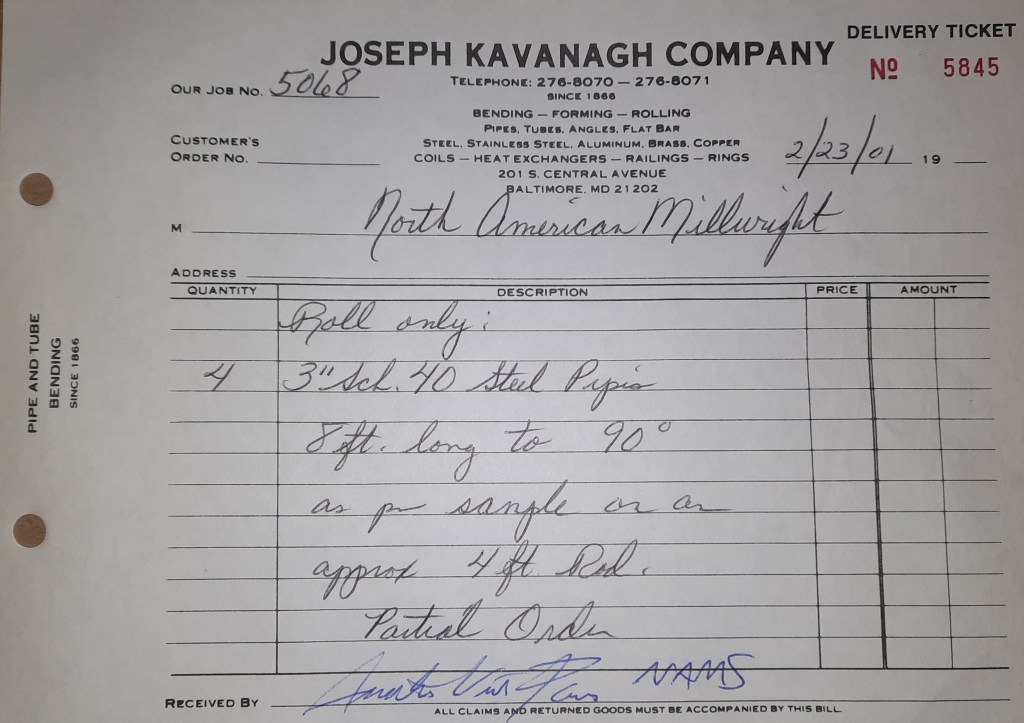 DELIVERY TICKET
JOSEPH KAVANAGH COMPANY
Nº 5845
OUR JOB NO. 5068
TELEPHONE: 276-8070 — 276-8071
SINCE 1866
BENDING — FORMING — ROLLING
PIPES, TUBES, ANGLES, FLAT BAR
CUSTOMER'S
ORDER NO.
STEEL, STAINLESS STEEL, ALUMINUM, BRASS, COPPER
COILS — HEAT EXCHANGERS — RAILINGS — RINGS
2/23/01 19
201 S. CENTRAL AVENUE
BALTIMORE, MD 21202
M North American Millwright
ADDRESS
QUANTITY DESCRIPTION PRICE AMOUNT
Roll only:
4 3" Sch. 40 Steel Pipes
8 ft. long to 90°
as per sample or an
approx 4 ft. Rad.
Partial Order
RECEIVED BY NAMS
ALL CLAIMS AND RETURNED GOODS MUST BE ACCOMPANIED BY THIS BILL
PIPE AND TUBE
BENDING
SINCE 1866